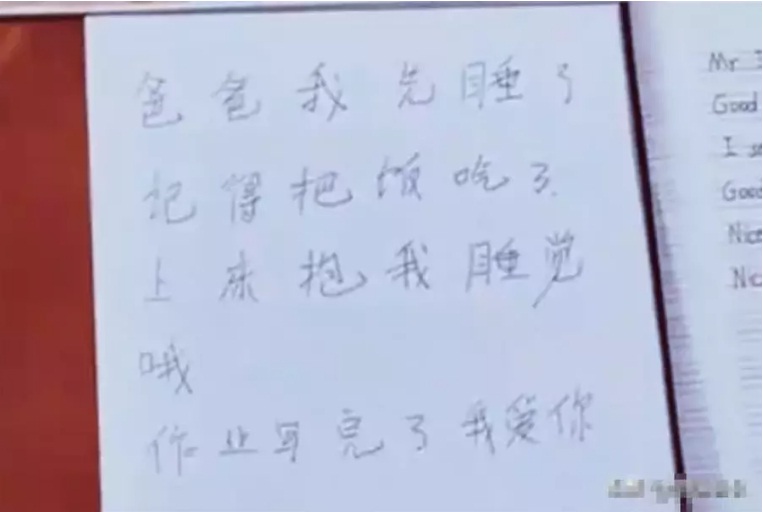 爸爸我先睡了
记得把饭吃了.
上床抱我睡觉
哦
作业写完了我爱你
Mr
Good
I
Good
Nice
Nic